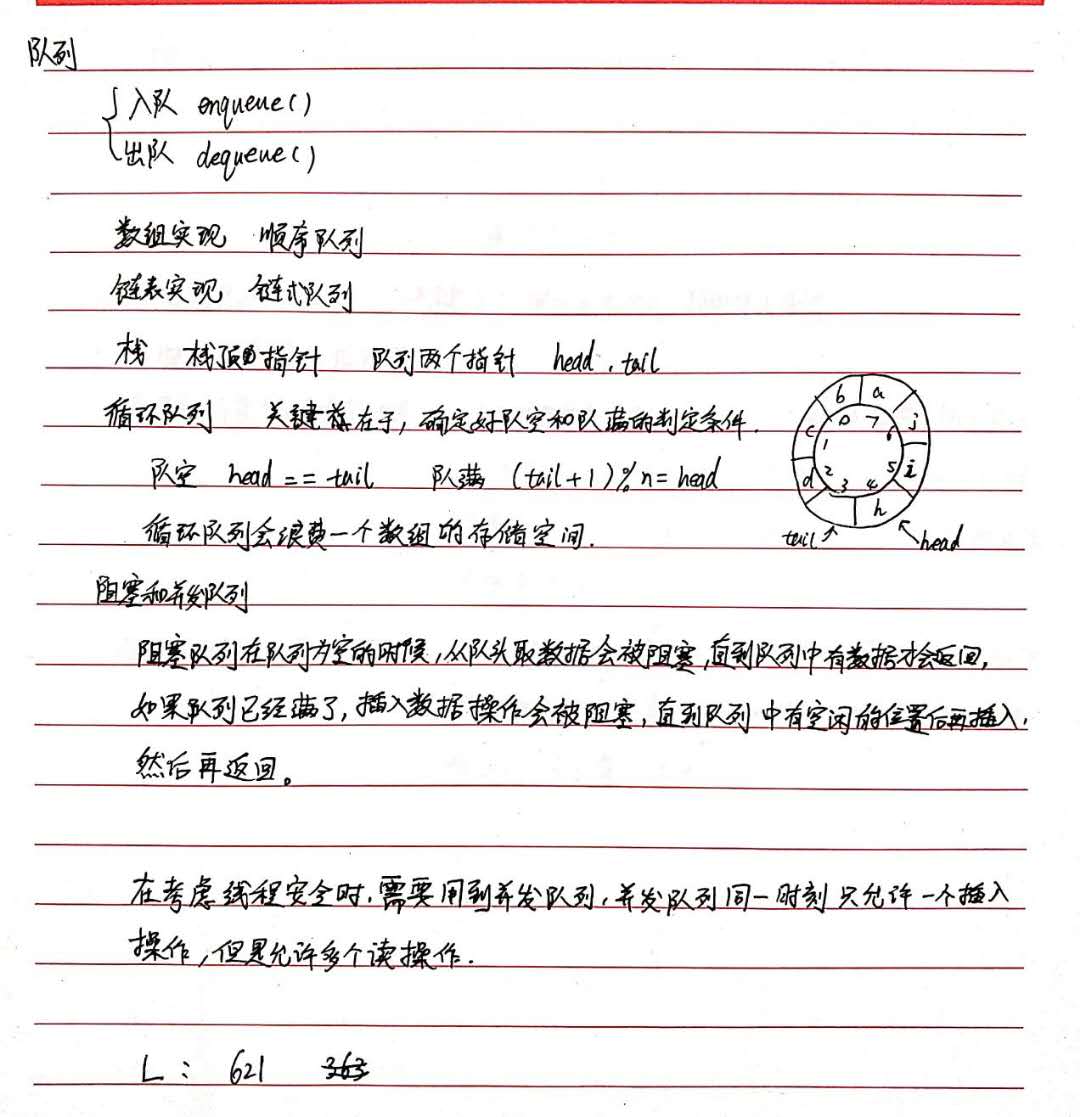 队列
入队 enqueue()
出队 dequeue()
数组实现 顺序队列
链表实现 链式队列
栈 栈顶指针 队列两个指针 head, tail
循环队列 关键在于, 确定好队空和队满的判定条件.
队空 head == tail 队满 (tail+1)%n = head
循环队列会浪费一个数组的存储空间.
b a
c 0 7 j
1 6
d 2 5 i
3 4
h
tail head
阻塞和并发队列
阻塞队列在队列为空的时候, 从队头取数据会被阻塞, 直到队列中有数据才会返回,
如果队列已经满了, 插入数据操作会被阻塞, 直到队列中有空闲的位置后再插入,
然后再返回。
在考虑线程安全时, 需要用到并发队列, 并发队列同一时刻只允许一个插入
操作, 但是允许多个读操作.
L: 621 363